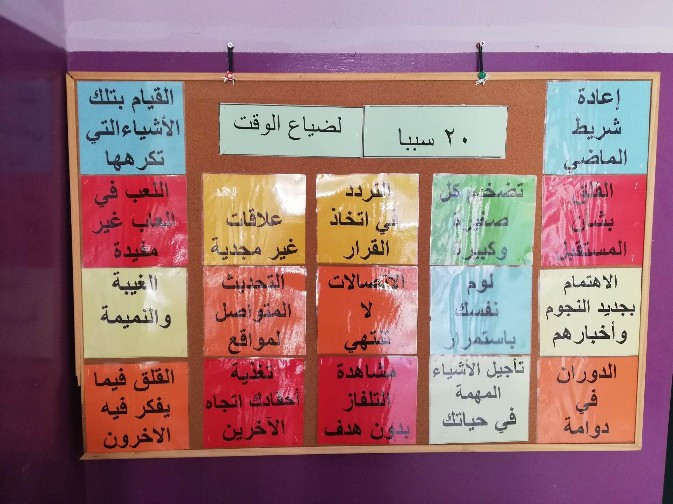 ٢٠ سببا لضياع الوقت
إعادة
شريط
الماضي
القيام بتلك
الأشياء التي
تكرهها
القلق
بشأن
المستقبل
تضخيم كل
صغيرة
وكبيرة
التردد
في اتخاذ
القرار
علاقات
غير مجدية
اللعب في
العاب غير
مفيدة
الاهتمام
بجديد النجوم
وأخبارهم
لوم
نفسك
باستمرار
الاتصالات
لا
تنتهي
التحديث
المتواصل
لمواقع
الغيبة
والنميمة
الدوران
في
دوامة
تأجيل الأشياء
المهمة
في حياتك
مشاهدة
التلفاز
بدون هدف
تغذية
أحقادك اتجاه
الآخرين
القلق فيما
يفكر فيه
الاخرون